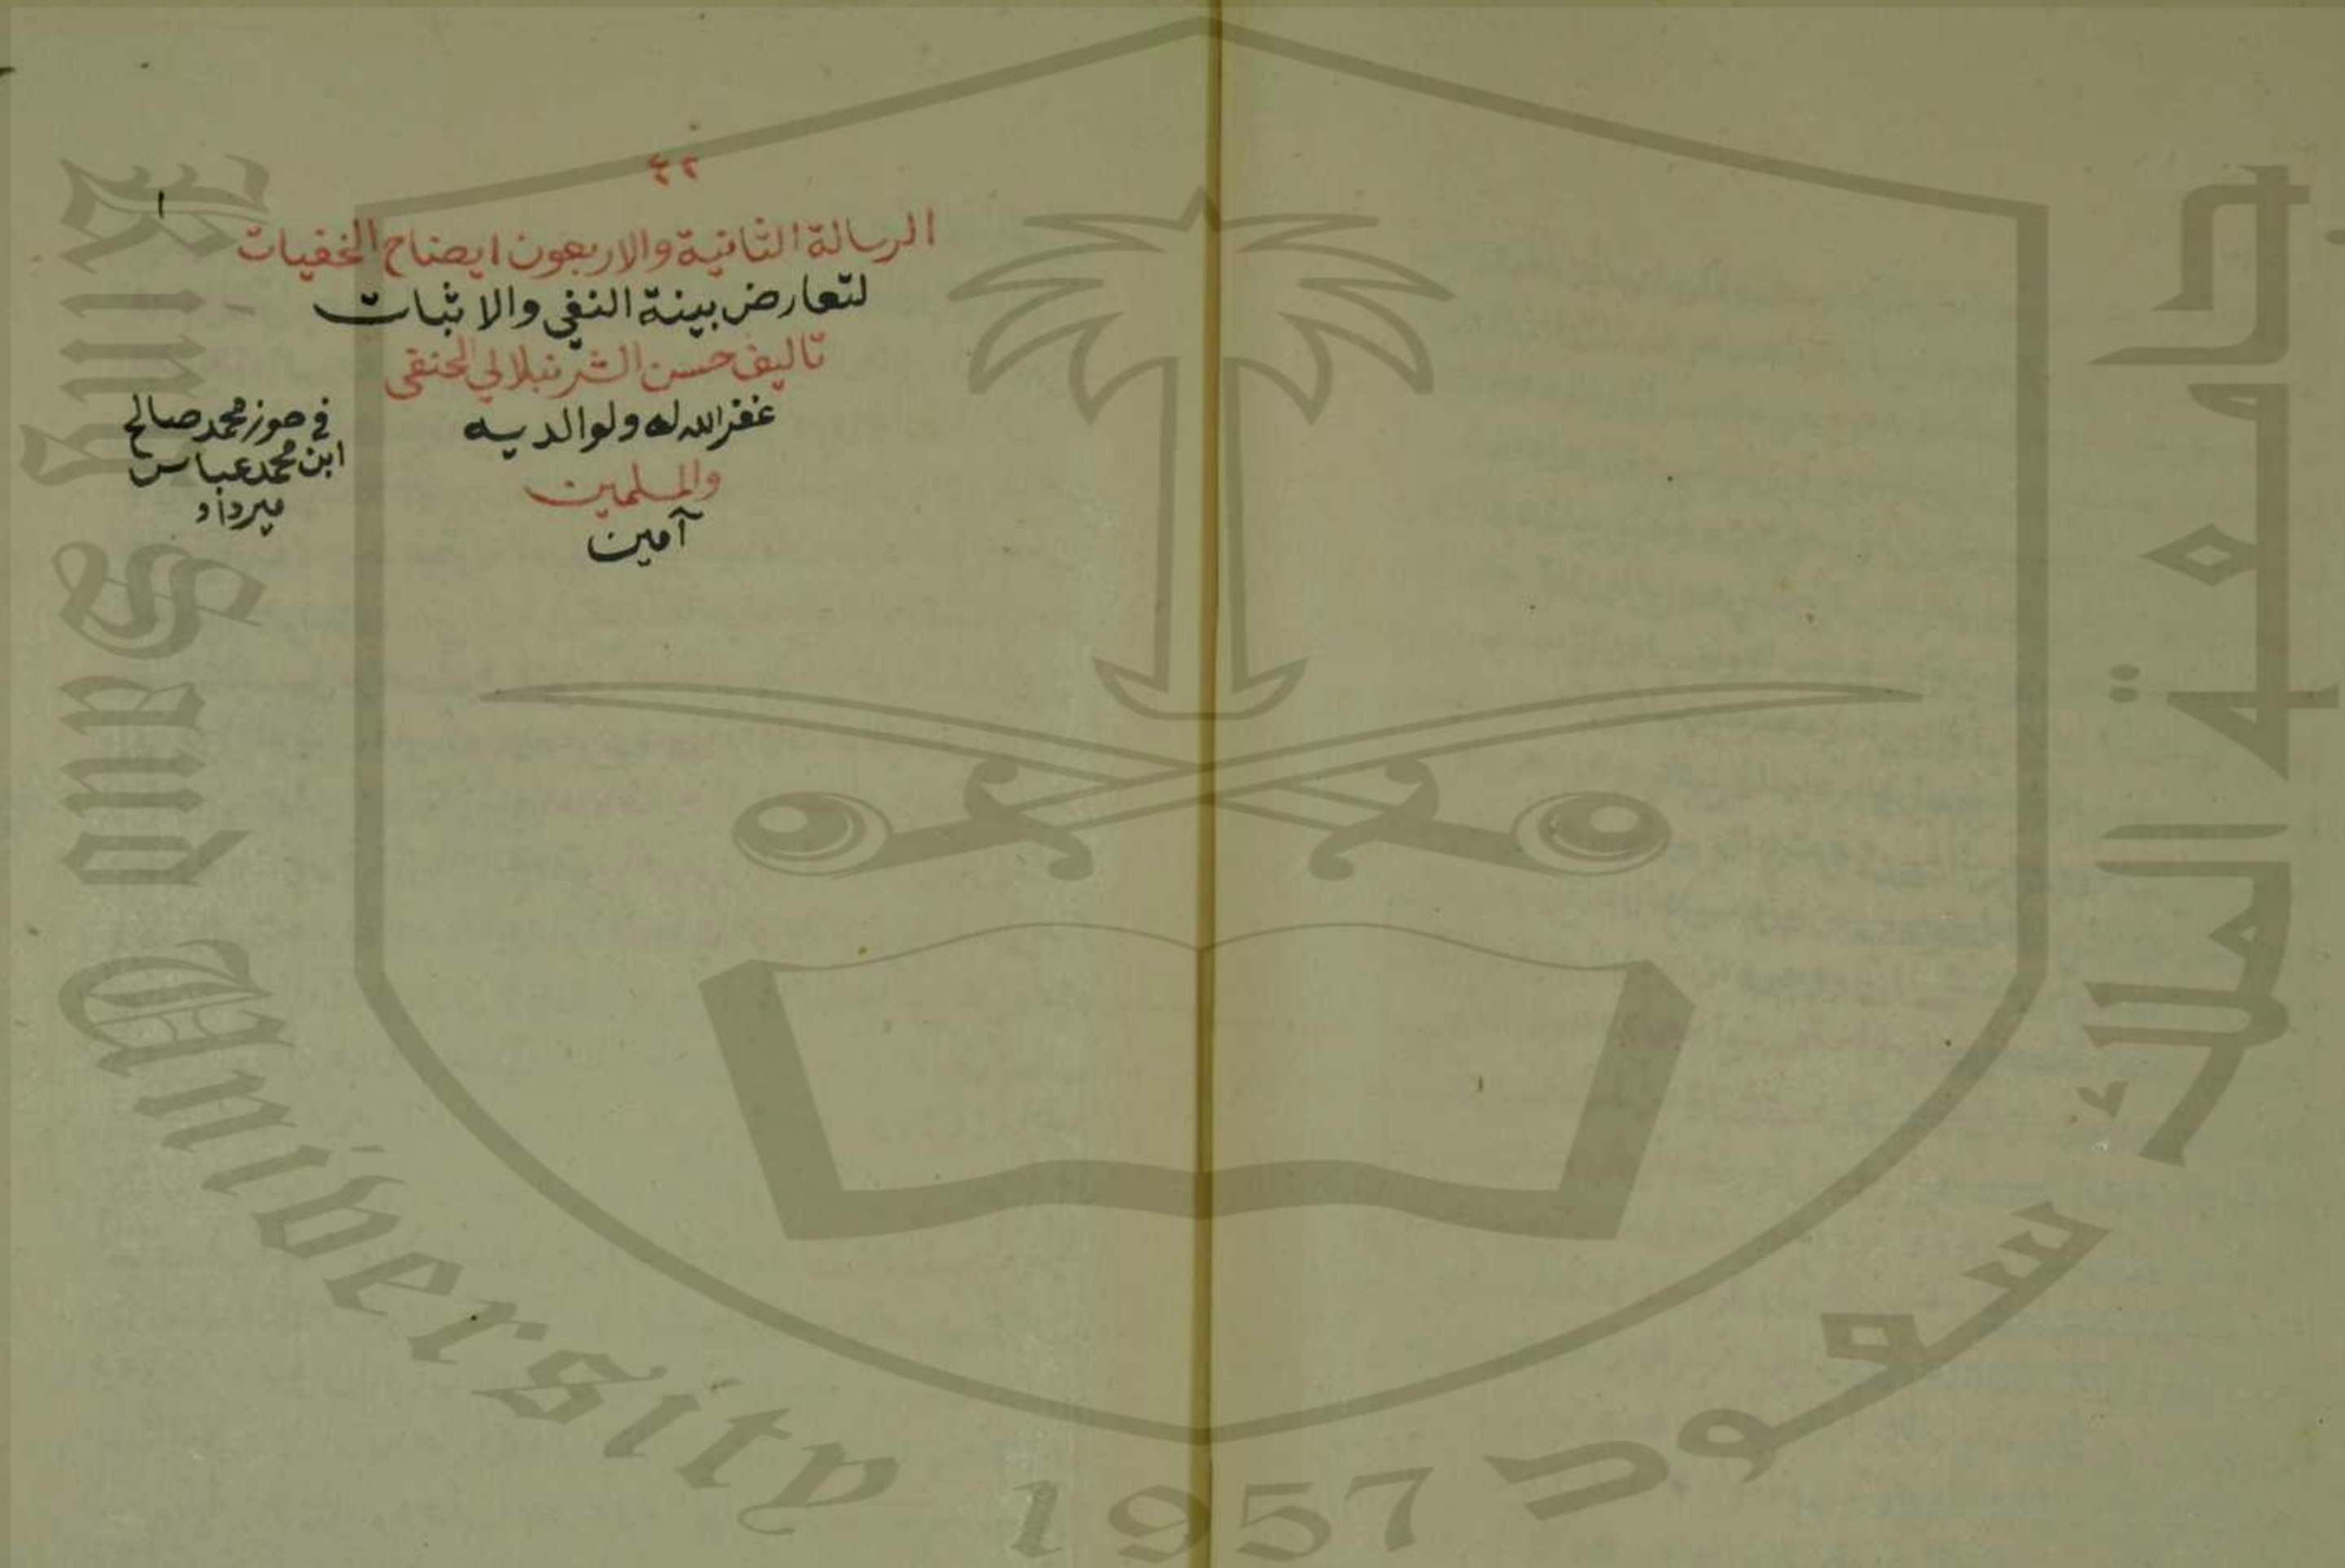 ٤٢
١
الرسالة الثانية والاربعون ايضاح الخفيات
لتعارض بينة النفي والاثبات
تاليف حسن الشرنبلالي الحنفي
غفر الله له ولوالديه
والمسلمين
آمين
في حوز محمد صالح
ابن محمد عباس
ميرداد
جامعة الملك سعود
King Saud University 1957